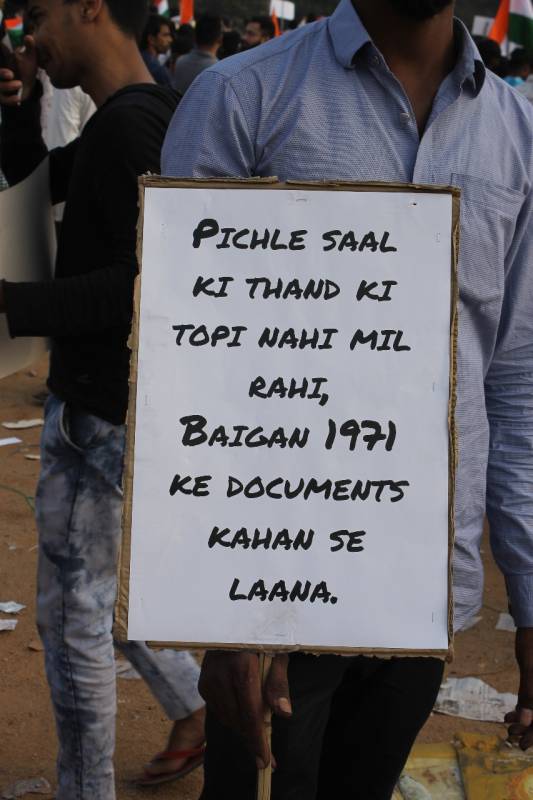 PICHLE SAAL
KI THAND KI
TOPI NAHI MIL
RAHI,
BAIGAN 1971
KE DOCUMENTS
KAHAN SE
LAANA.